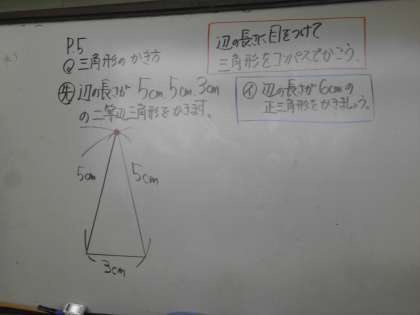 P.5
Q 三角形のかき方
辺の長さに目をつけて
三角形をコンパスでかこう。
先 辺の長さが 5cm 5cm 3cm
の二等辺三角形をかきます。
イ 辺の長さが6cmの
正三角形をかきましょう。
5cm
5cm
3cm